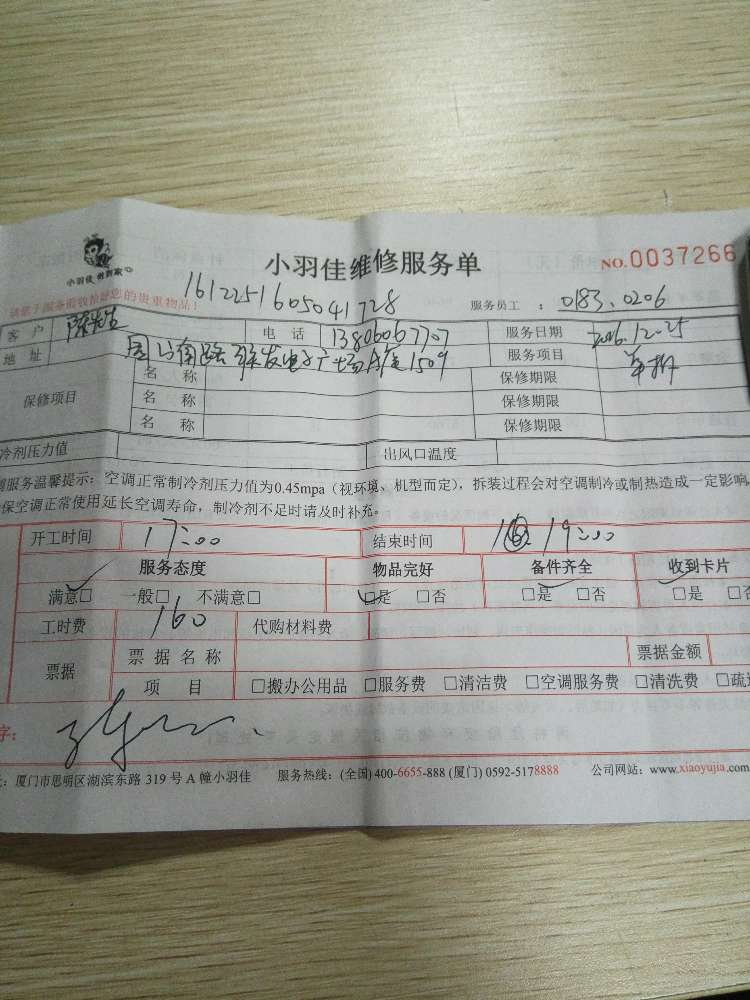 小羽佳 做到家
小羽佳维修服务单
NO.0037266
1612251605041728
服务员工 : 0183.0206
请您于服务前收拾好您的贵重物品!
客户 陈先生 电话 13806067707 服务日期 2016.12.25
地址 1509 服务项目 单拆
保修项目 名称 保修期限
名称 保修期限
名称 保修期限
冷剂压力值 出风口温度
服务温馨提示:空调正常制冷剂压力值为0.45mpa(视环境、机型而定),拆装过程会对空调制冷或制热造成一定影响,
保空调正常使用延长空调寿命,制冷剂不足时请及时补充。
开工时间 17:00 结束时间 19:00
服务态度 物品完好 备件齐全 收到卡片
满意□ 一般□ 不满意□ □是 □否 □是 □否 □是 □否
工时费 160 代购材料费
票据 票据名称 票据金额
项目 □搬办公用品 □服务费 □清洁费 □空调服务费 □清洗费 □疏
字:
:厦门市思明区湖滨东路 319 号 A 幢小羽佳 服务热线:(全国) 400-6655-888 (厦门) 0592-5178888 公司网站:www.xiaoyujia.com